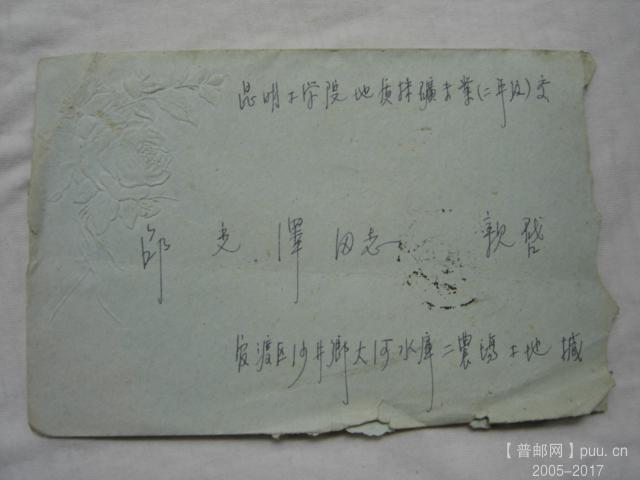 昆明工学院地质採礦专業(二年级)交
邱光澤同志 親啓
官渡区沙井鄉大河水庫二農場工地 搣
【普邮网】puu.cn
2005-2017